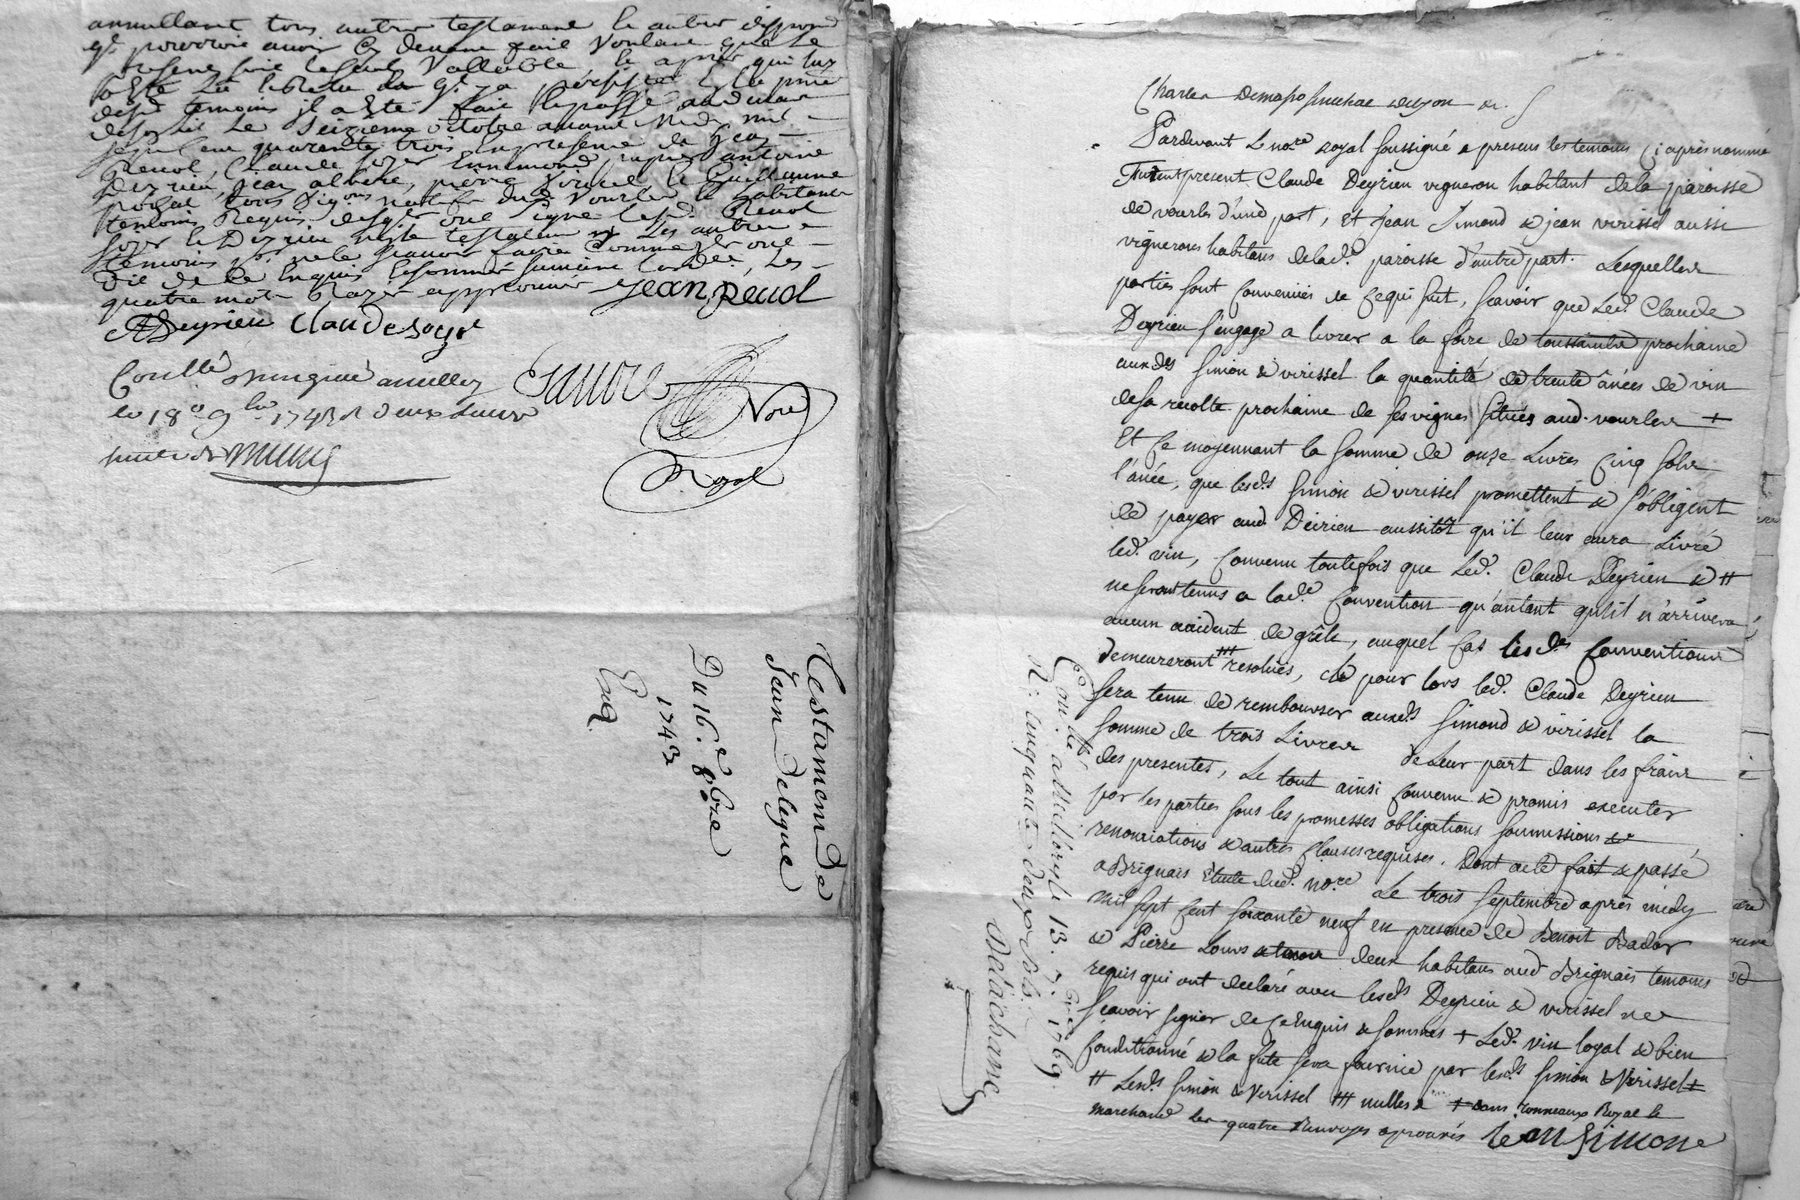 annullant tous autres testament & autres disposi
qu'il pourroit avoir cy devant fait voulant que le
present soit le seul vallable, & apres que luy
a esté leu & releu
temoins il a esté fait & passé aud
le seizieme octobre avant midy mil
sept cent quarante trois en presence de Jean
Renol, Claude Soyer, Ennemond, antoine
Deyrieu, jean, pierre Viricel & Guillaume
tous vignerons dud. Vourles & habitants
temoins requis desquels ont signé lesd. Renol
Soyer & Deyrieu, testateur ny les autres
temoins pour ne le scavoir faire comme ils ont
dit de ce enquis & sommés
quatre mots rayez approuvés
Jean Renol
A Deyrieu Claude Soyer
Conllé à
le 18e 9bre 1743 R deux livres
Favre
Nore
Royal
Testament de
Jean Delegue
Du 16e 8bre
1743
Exq.
Charles Demasso senechal de Lyon &c.
Pardevant le nore royal soussigné & presens les temoins cy après nommé
furent present Claude Deyrieu vigneron habitant de la paroisse
de vourles d'une part, et Jean Simond & jean virissel aussi
vignerons habitans de lad.e paroisse d'autre part. Lesquelles
parties sont convenües de ce qui suit, scavoir que led. Claude
Deyrieu s'engage a livrer a la foire de toussaints prochaine
auxdts Simon & virissel la quantité de trente ânées de vin
de sa recolte prochaine de ses vignes situées aud. vourles +
Et ce moyennant la somme de onze livres cinq sols
l'ânée, que lesds Simon & virissel promettent & s'obligent
de payer aud Deirieu aussitôt qu'il leur aura livré
led. vin, convenu toutefois que led. Claude Deyrieu & #
ne seront tenus a lad.e convention qu'autant qu'il n'arrivera
aucun accident de grêle, auquel cas lesd.es conventions
demeureront ⧻ resolues, & pour lors led. Claude Deyrieu
sera tenu de rembourser auxds Simond & virissel la
somme de trois livres de leur part dans les frais
des presentes, Le tout ainsi convenu & promis executer
par les parties sous les promesses obligations soumissions
renonciations & autres clauses requises. Dont acte fait & passé
a Brignais étude dud. nore le trois septembre après midy
mil sept cent soixante neuf en presence de Benoit Bador
& Pierre Louis deux habitans aud Brignais temoins
requis qui ont declaré avec lesds Deyrieu & virissel ne
scavoir signer de ce enquis & sommés + Led. vin loyal & bien
conditionné & la fute sera fournie par lesds Simon & Virissel ±
# Lesds Simon & Virissel ⧻ nulles & ± dans tonneaux Royal &
marchand Les quatre renvoys aprouvés Jean Simone
Con.llé a le 13. 7.bre 1769
R. cinquante deux sols
Dalachana